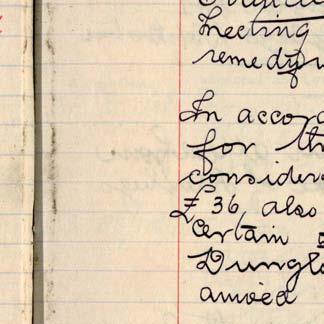 Meeting
remedy
In accord
for th
consider
£36, also
Certain a
Dungl
arrived